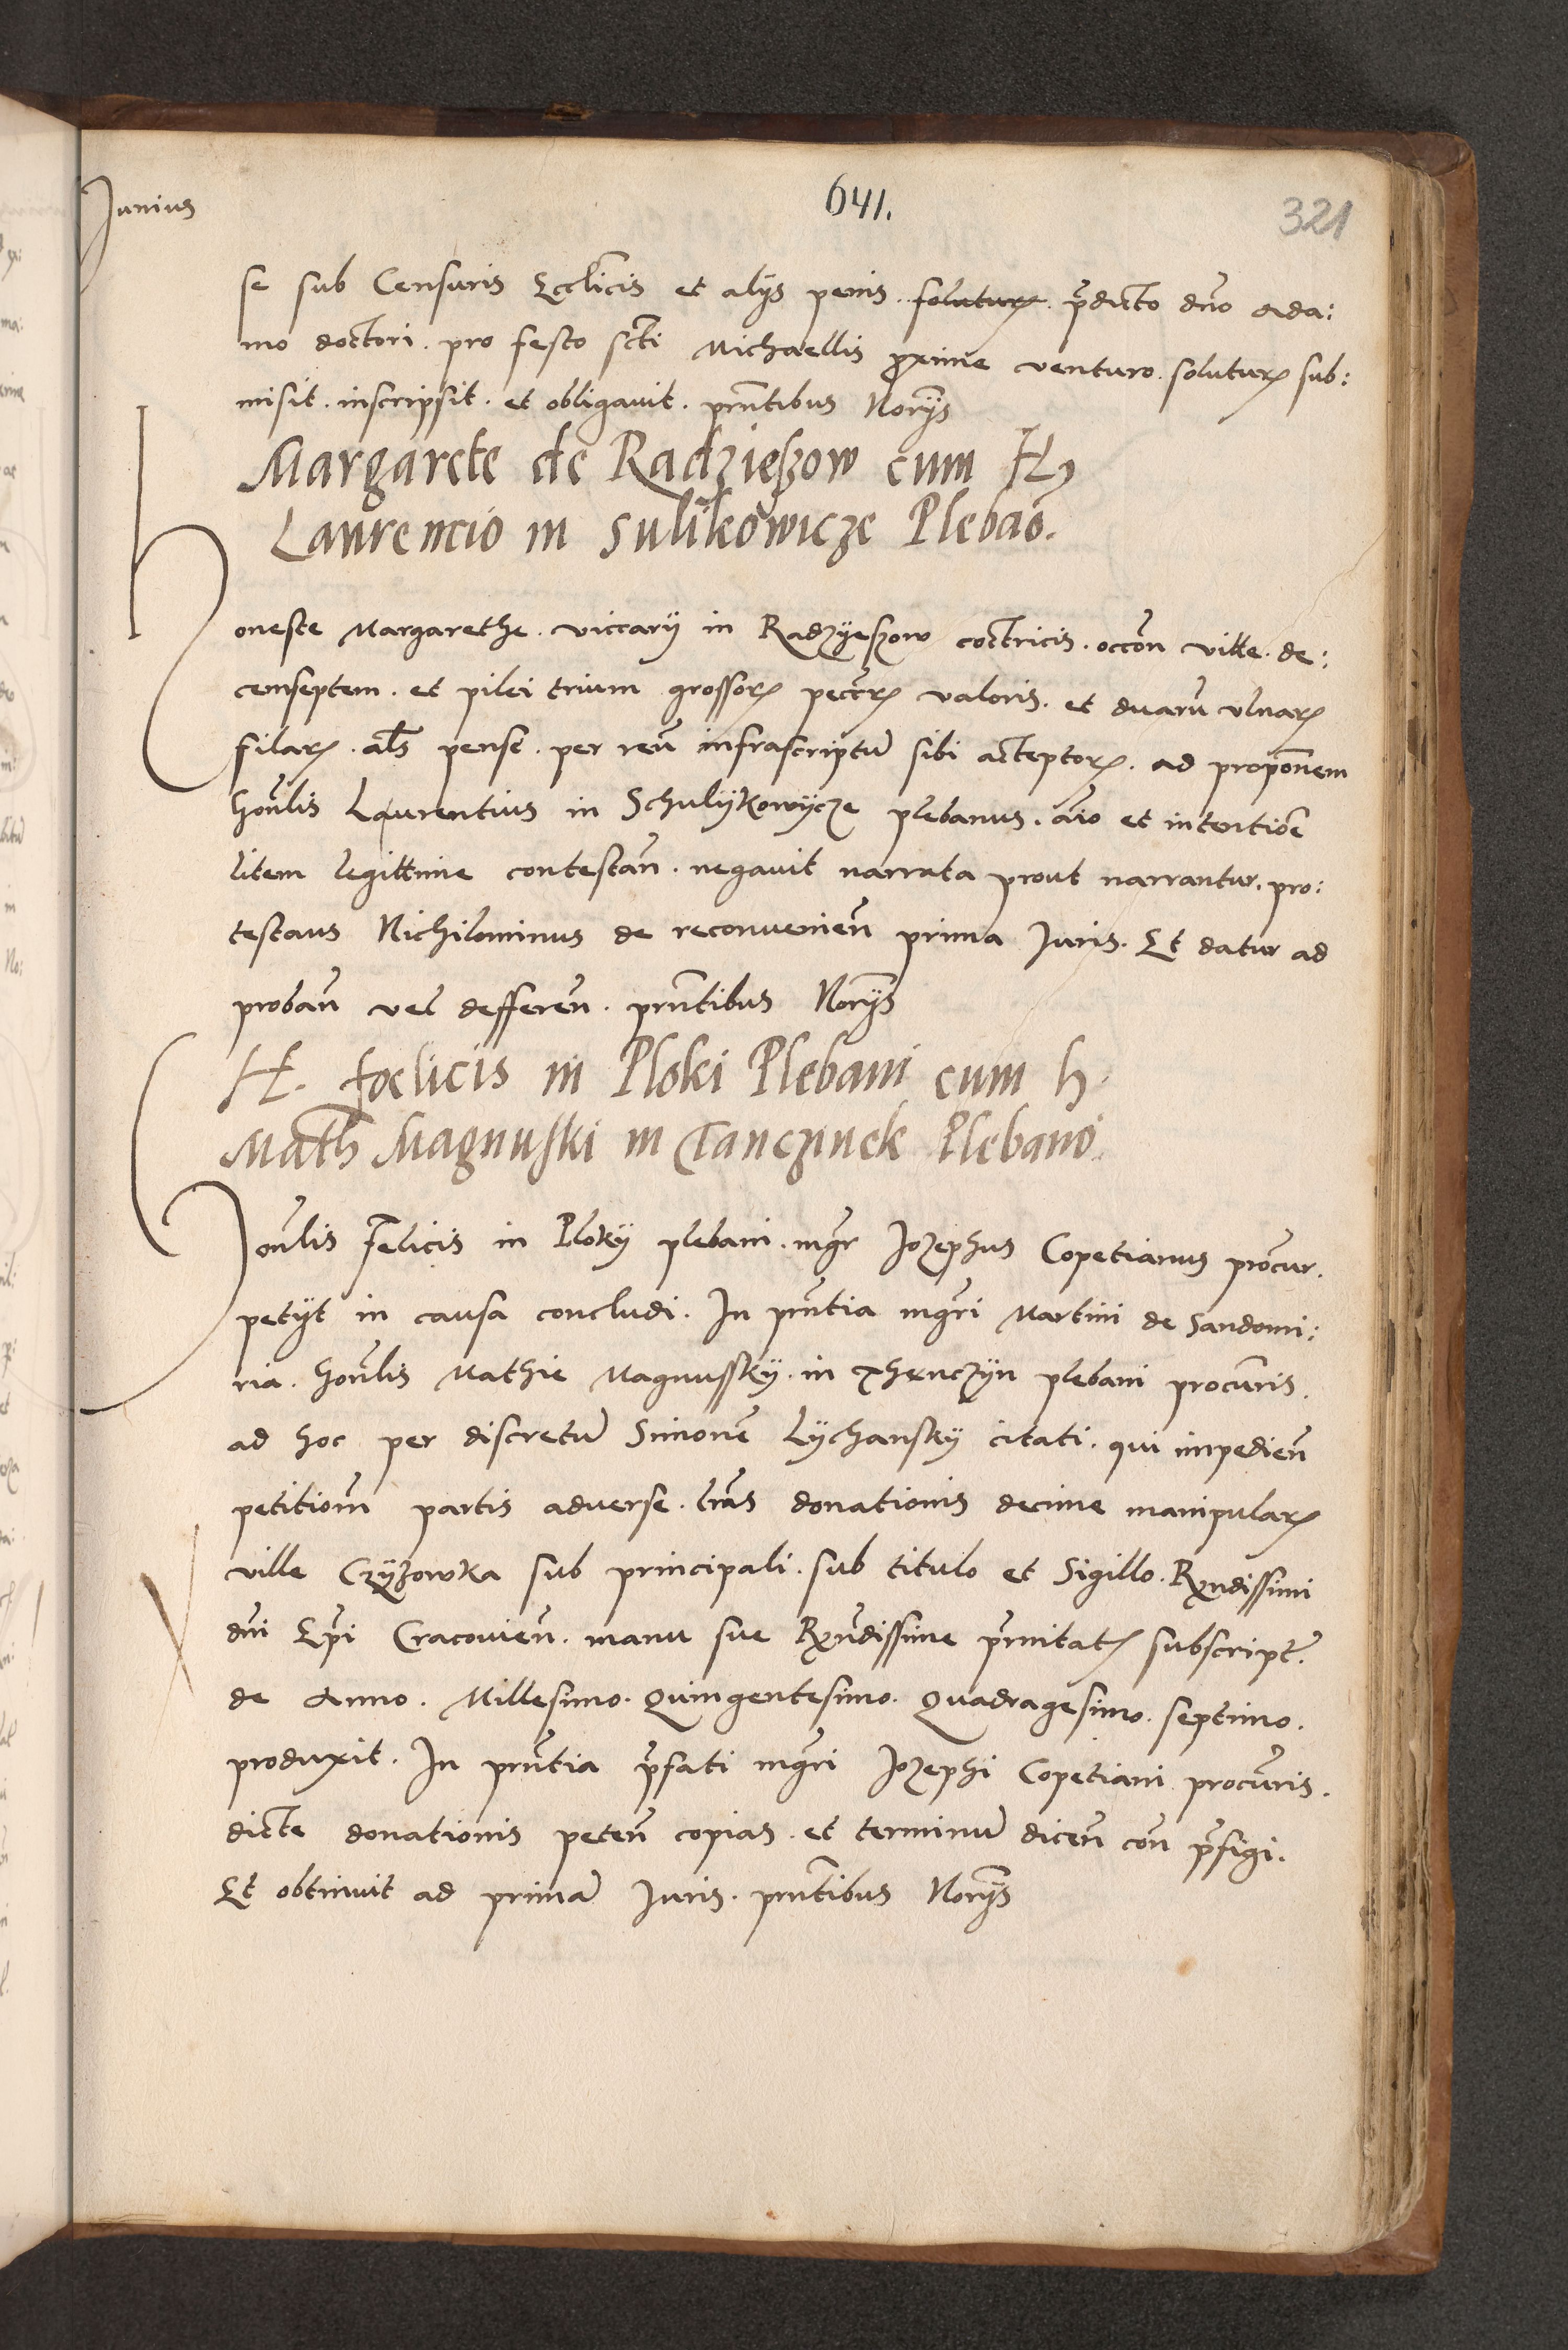 Junius
641.
321
se sub Censuris Ecclicis et alys penis . soluturum . pdicto dno Ada:
mo doctori . pro festo scti Michaellis proxime venturo . soluturum sub:
misit . inscripsit . et obligavit . pntibus Norys
Margarete de Radzieszow cum H
Laurencio in Sulikowicze Plebao.
Honeste Margarethe . viccarij in Radzÿeszow coctricis . occon ville . de:
cemseptem . et pilei trium grossorum valoris . et duaru ulnarum
filarum . als pense . per reu infrascriptu sibi acceptorum . ad proponem
honlis Laurentius in Schulÿkowÿcze plebanus . aio et intentioe
litem legittime contestan . negavit narrata prout narrantur . pro:
testans Nichilominus de reconvenien prima Juris . Et datur ad
proban vel defferen . pntibus Norys
H. fœlicis in Ploki Plebani cum h.
Math Magnuski in Tanczinek Plebano.
Honlis Felicis in Plokÿ plebani . mgr Jozephus Copetianus procur.
petÿt in causa concludi . In pntia mgri Martini de Sandomi:
ria . honlis Mathie Magnusskÿ . in Thenczÿn plebani procuris .
ad hoc per discretu Simone Lÿchanskÿ citati . qui impedien
petitiom partis adverse . lras donationis decime manipularum
ville Czÿzowka sub principali . sub titulo et Sigillo . Rxndissimi
dni Epi Cracovien . manu sue Rxndissime pnitatis subscript.
de Anno . Millesimo . Quingentesimo . Quadragesimo . septimo .
produxit . In pntia pfati mgri Jozephi Copetiani procuris .
dicte donationis peten copias . et terminu dicen con pfigi .
Et obtinuit ad prima Juris . pntibus Norys